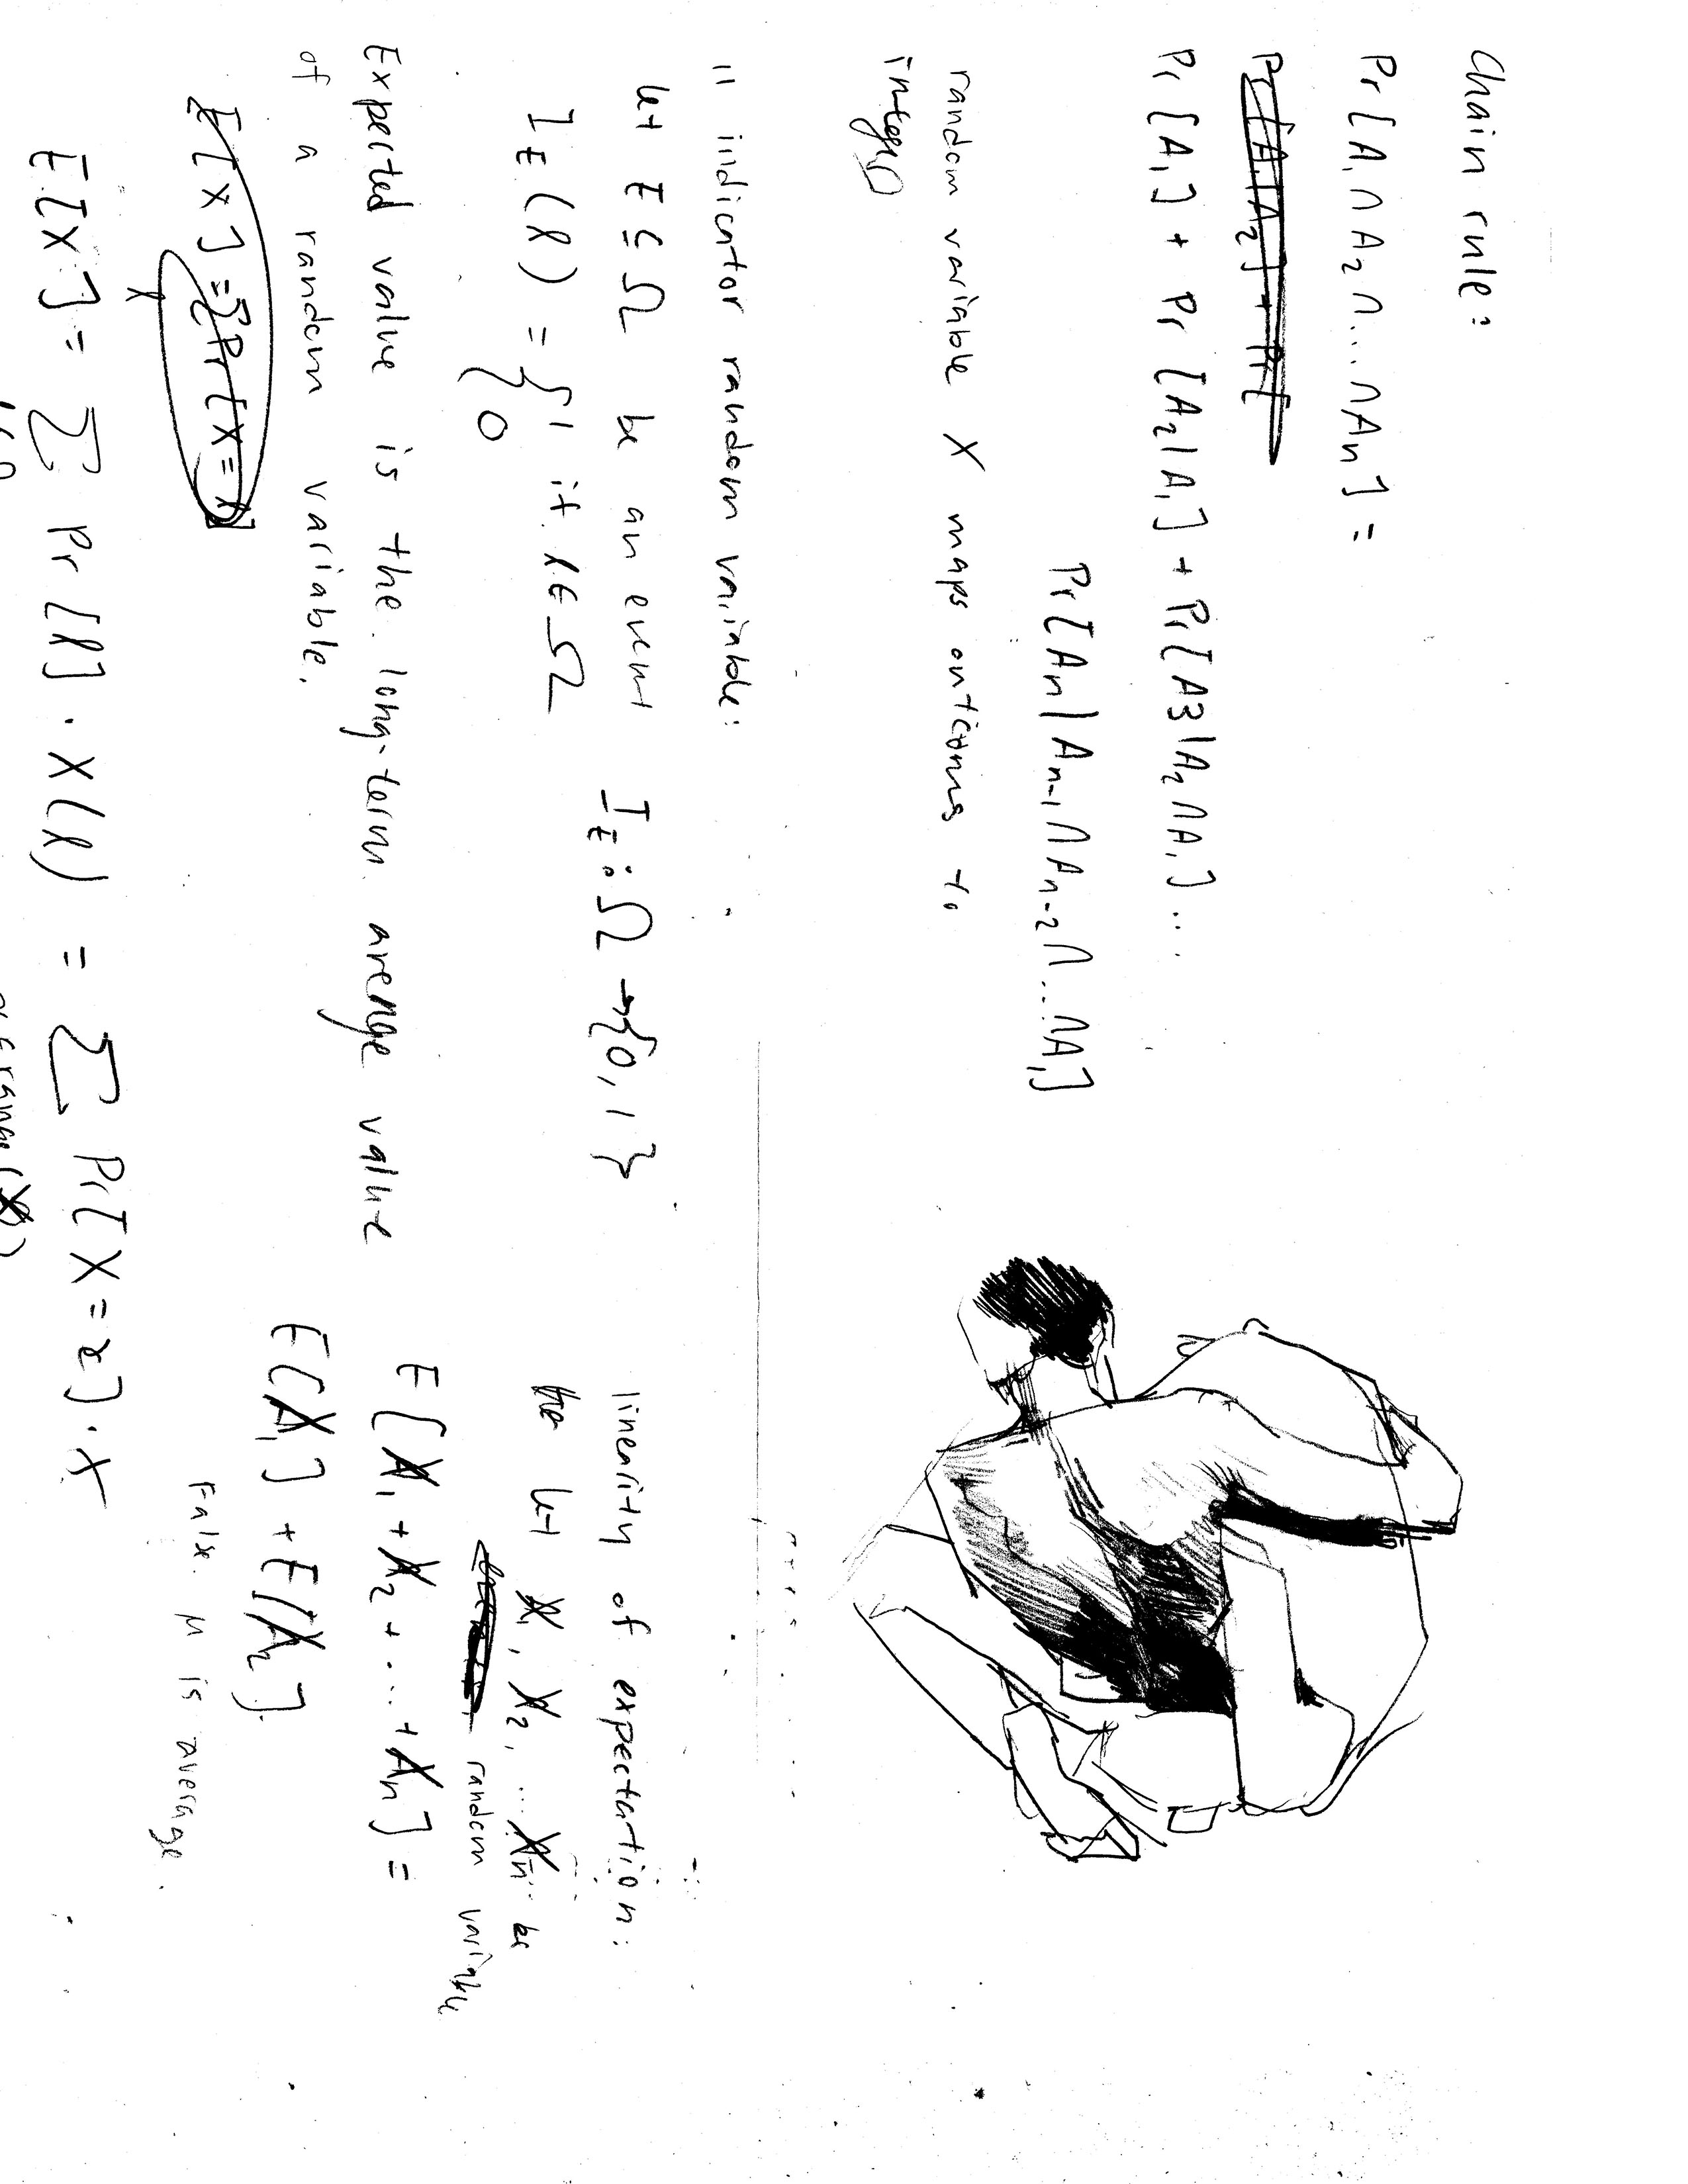 Chain rule:
Pr[A₁ ∩ A₂ ∩ ... ∩ An] =
Pr[A₁|A₂] + Pr[
Pr[A₁] + Pr[A₂|A₁] + Pr[A3|A₂ ∩ A₁] ...
Pr[An|An-1 ∩ An-2 ∩ ... ∩ A₁]
random variable X maps outcomes to
integers
11 indicator random variable:
let E ⊆ Ω be an event I_E: Ω → {0, 1}
I_E(l) = { 1 if l ∈ Ω
0
Expected value is the long-term average value
of a random variable.
E[X] = Σ Pr[X = x]
E[X] = Σ Pr[l] · X(l) = Σ Pr[X = x] · x
x ∈ range(X)
linearity of expectation:
let X₁, X₂, ... Xn be
random variable
E[X₁ + X₂ + ... + Xn] =
E[X₁] + E[X₂]
False. μ is average.